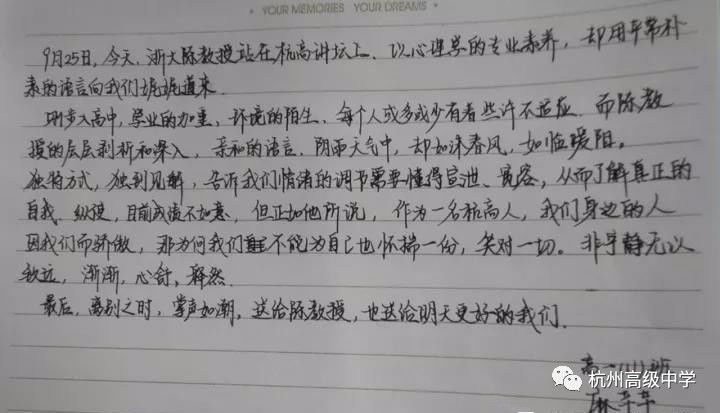 • YOUR MEMORIES YOUR DREAMS •
9月25日,今天,浙大陈教授站在杭高讲坛上,以心理学的专业素养,却用平常朴
素的语言向我们娓娓道来.
刚步入高中,学业的加重,环境的陌生,每个人或多或少有着些许不适应.而陈教
授的层层剖析和深入,亲和的语言,阴雨天气中,却如沐春风,如临暖阳。
独特方式,独到见解,告诉我们情绪的调节需要懂得宣泄、宽容,从而了解真正的
自我.纵使,目前成绩不如意,但正如他所说,作为一名杭高人,我们身边的人
因我们而骄傲,那为何我们不能为自己也怀揣一份,笑对一切。非宁静无以
致远,渐渐,心舒,释然.
最后,离别之时,掌声如潮,送给陈教授,也送给明天更好的我们.
高一(11)班
杭州高级中学